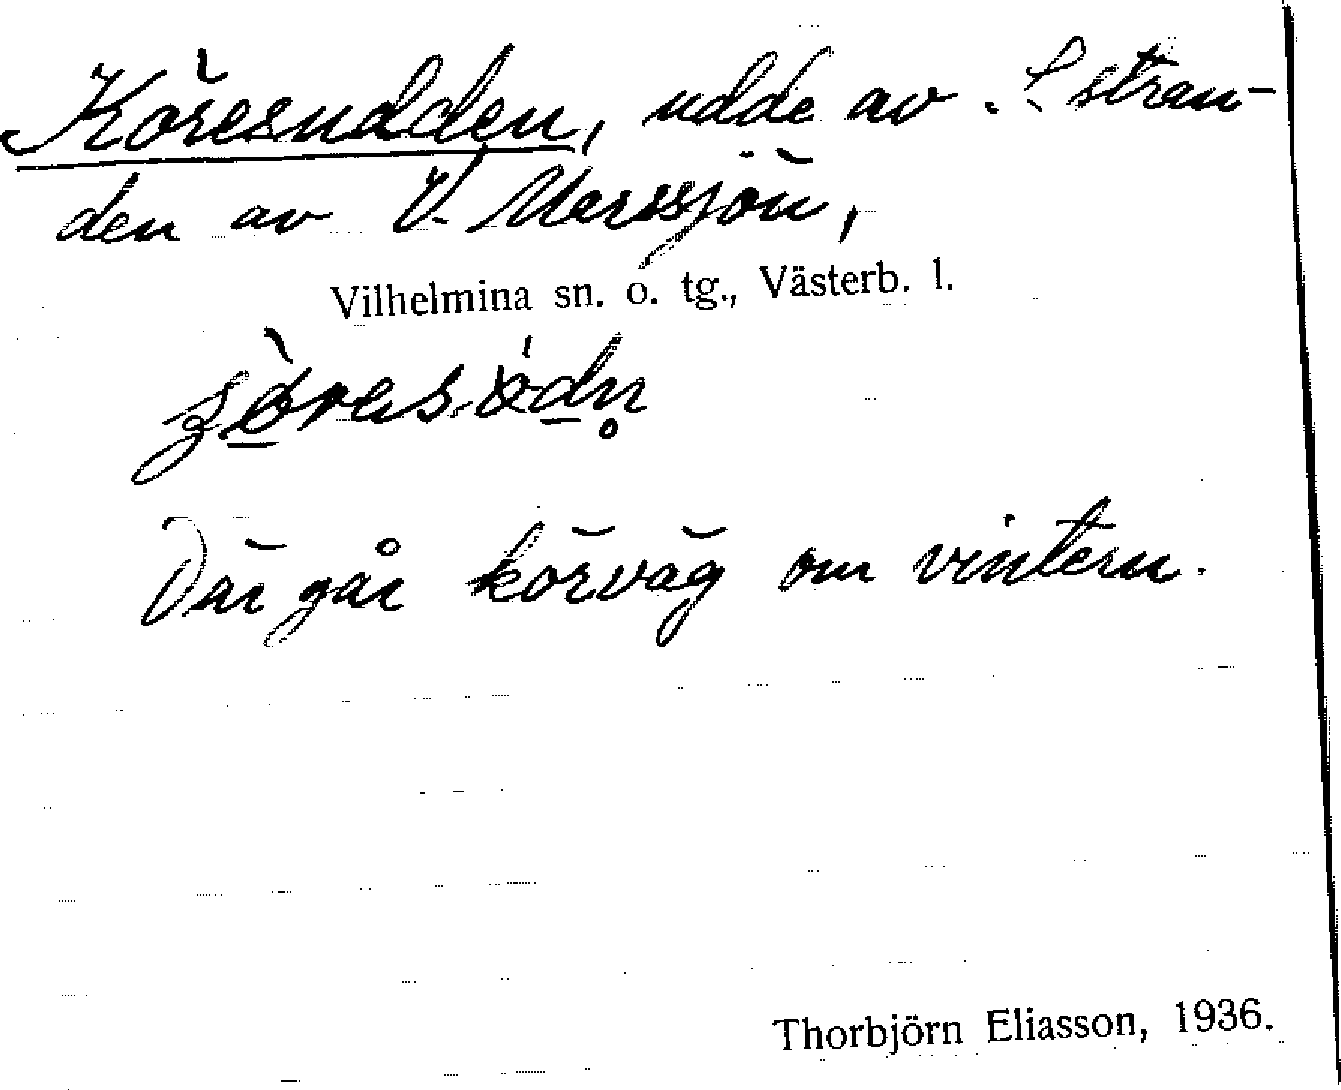 Köresudden, udde av S stran-
den av V. Marssjön,
Vilhelmina sn. o. tg., Västerb. l.
Där går körväg om vintern.
Thorbjörn Eliasson, 1936.